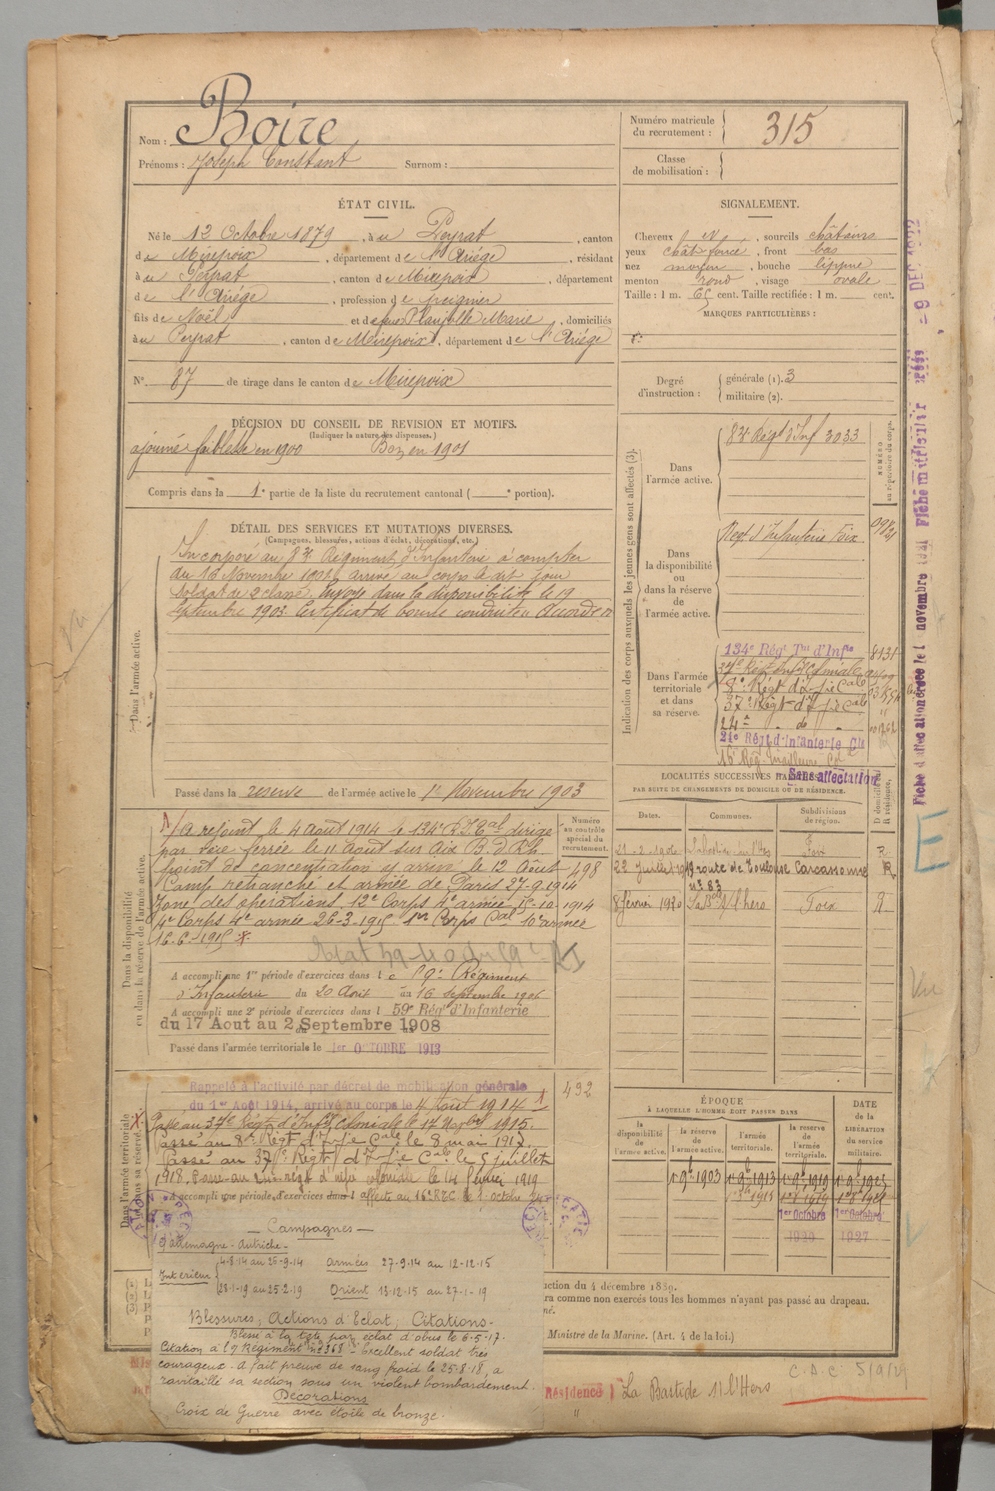 Nom : Boire
Prénoms : Joseph Constant Surnom :
Numéro matricule du recrutement : 315
Classe de mobilisation :
ÉTAT CIVIL.
Né le 12 Octobre 1879, à u Peyrat, canton
de Mirepoix, département de l'Ariége, résidant
à u Peyrat, canton de Mirepoix, département
de l'Ariége, profession de peignier
fils de Noël et de feue Planjolle Marie, domiciliés
à u Peyrat, canton de Mirepoix, département de l'Ariége
N° 87 de tirage dans le canton de Mirepoix
SIGNALEMENT.
Cheveux N, sourcils châtains
yeux chât foncé, front bas
nez moyen, bouche lippue
menton rond, visage ovale
Taille : 1 m. 65 cent. Taille rectifiée : 1 m. cent.
MARQUES PARTICULIÈRES :
Degré d'instruction : générale (1). 3
militaire (2).
DÉCISION DU CONSEIL DE REVISION ET MOTIFS.
(Indiquer la nature des dispenses.)
ajourné faiblesse en 1900 Bon en 1901
Compris dans la 1e partie de la liste du recrutement cantonal ( e portion).
DÉTAIL DES SERVICES ET MUTATIONS DIVERSES.
(Campagnes, blessures, actions d'éclat, décorations, etc.)
Dans l'armée active.
Incorporé au 83e Régiment d'Infanterie à compter
du 16 Novembre 1902, arrivé au corps le dit jour
soldat de 2e classe. Envoyé dans la disponibilité le 19
septembre 1903. Certificat de bonne conduite "Accordé"
Passé dans la réserve de l'armée active le 1er Novembre 1903
Indication des corps auxquels les jeunes gens sont affectés (3).
NUMÉRO au répertoire du corps.
Dans l'armée active.
83e Régt d'Inf 3033
Dans la disponibilité ou dans la réserve de l'armée active.
Régt d'Infanterie Foix
Dans l'armée territoriale et dans sa réserve.
134e Régt Tal d'Infie 8131
37e Régt Inf Coloniale
8e Régt d'Infie Cale
37e Régt d'Infie Cale
24e - de -
24e Régt d'Infanterie Cle
16e Rég. Tirailleurs Col
Sans affectation
Fiche matriculaire créée - 9 DEC 1922
LOCALITÉS SUCCESSIVES HABITÉES
PAR SUITE DE CHANGEMENTS DE DOMICILE OU DE RÉSIDENCE.
Dates. Communes. Subdivisions de région. D domicile R résidence.
Foix R
22 Juillet 1919 route de Toulouse n° 83 Carcassonne R
8 février 1920 La Bde s/ l'hers Foix R
Dans la disponibilité ou dans la réserve de l'armée active.
Numéro au contrôle spécial du recrutement.
498
A rejoint le 4 Août 1914 le 134e R.I.Tal dirigé
par voie ferrée le 11 Août sur Aix B.d.Rh.
point de concentration y arrivé le 12 Août
Camp retranché et armée de Paris 27-9-1914
Zone des opérations, 12e Corps 4e armée 15-10-1914
4e Corps 4e armée 26-3-1915 1er Corps Cal 10e armée
16-6-1915
A accompli une 1re période d'exercices dans le 59e Régiment
d'Infanterie du 20 Août au 16 septembre 1906
A accompli une 2e période d'exercices dans l 59e Régt d'Infanterie
du 17 Aout au 2 Septembre 1908
Passé dans l'armée territoriale le 1er OCTOBRE 1913
Dans l'armée territoriale et dans sa réserve.
492
Rappelé à l'activité par décret de mobilisation générale
du 1er Août 1914, arrivé au corps le 4 Août 1914
Passé au 37e Régt d'Infie Coloniale le 12 9bre 1915.
Passé au 8e Régt d'Infie Cale le 8 mai 1917.
Passé au 37e Régt d'Infie Cale le 5 juillet
1918. Passé au 24e régt d'infie coloniale le 14 février 1919
A accompli une période d'exercices dans l affecté au 16e RTC le 1 octobre
ÉPOQUE
À LAQUELLE L'HOMME DOIT PASSER DANS
la disponibilité de l'armée active. la réserve de l'armée active. l'armée territoriale. la réserve de l'armée territoriale.
DATE DE LA LIBÉRATION du service militaire.
1er 9bre 1903 1er 9bre 1913 1er 9bre 1919 1er 9bre 1925
1er Octobre 1er Octobre
1920 1927
Campagnes
Cie Allemagne - Autriche -
Intérieur 4-8-14 au 26-9-14 Armées 27-9-14 au 12-12-15
28-1-19 au 25-2-19 Orient 13-12-15 au 27-1-19
Blessures, Actions d'Eclat, Citations.
Blessé à la tête par éclat d'obus le 6-5-17.
Citation à l'o/ Régiment n° 368 - Excellent soldat très
courageux. A fait preuve de sang froid le 25-8-18, a
ravitaillé sa section sous un violent bombardement.
Décorations
Croix de Guerre avec étoile de bronze.
uction du 4 décembre 1889.
ra comme non exercés tous les hommes n'ayant pas passé au drapeau.
Ministre de la Marine. (Art. 4 de la loi.)
Résidence La Bastide s/ l'Hers
C.D.C 5/9/29